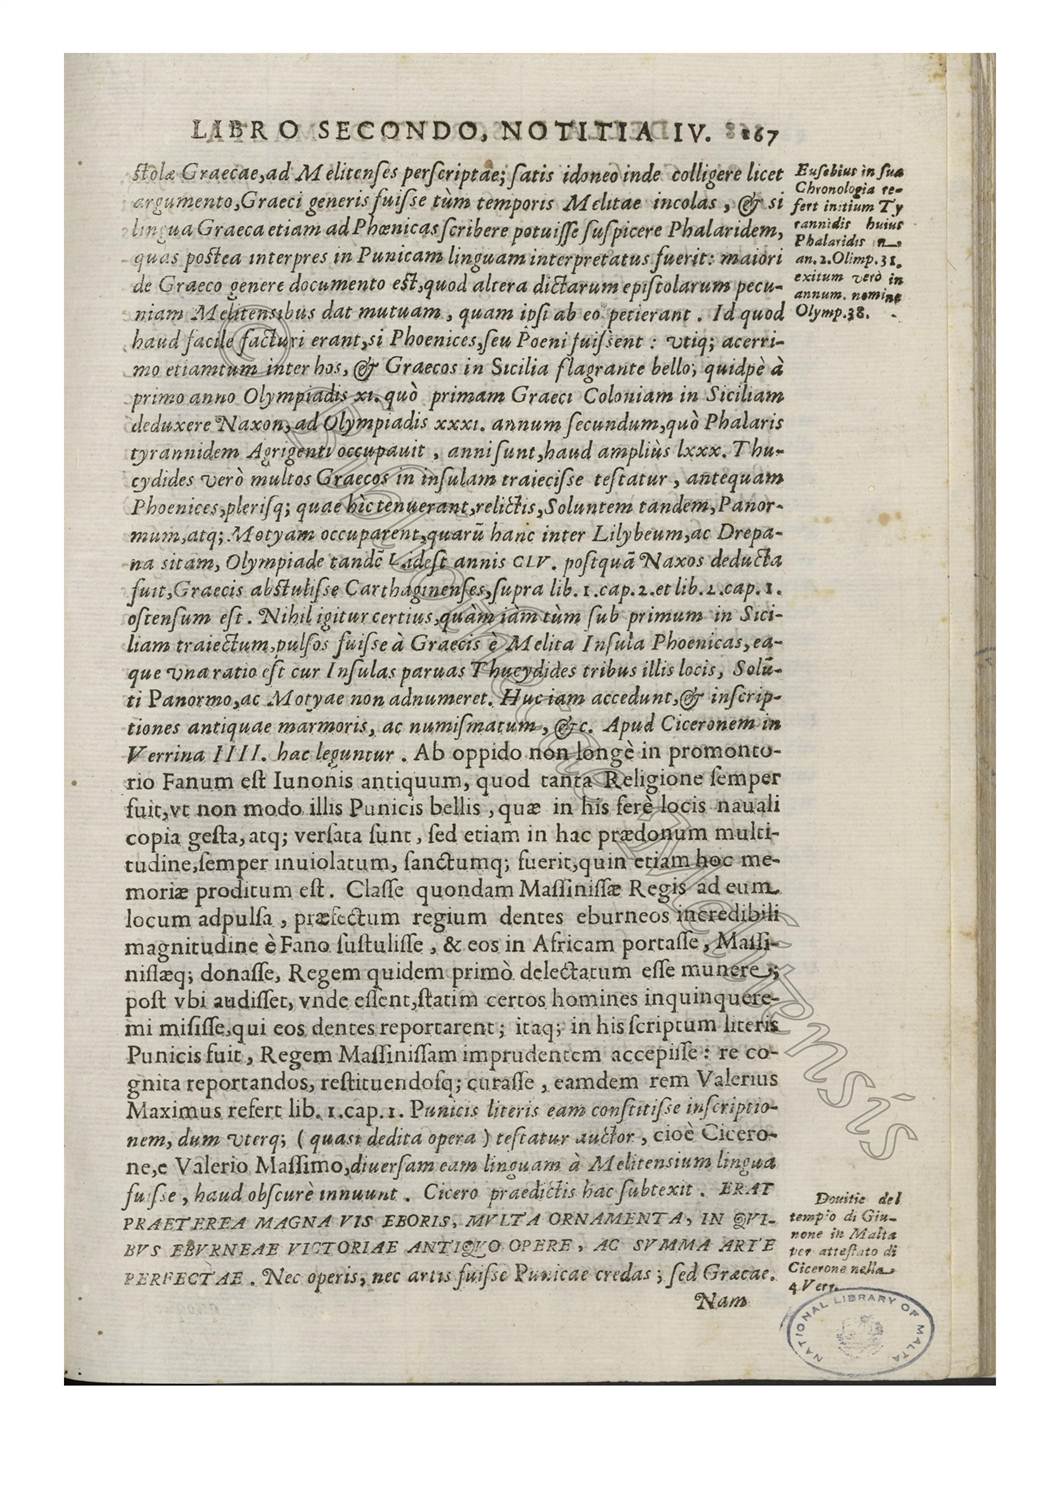 LIBRO SECONDO, NOTITIA IV. 167
stolæ Graecae, ad Melitenses perscriptae; satis idoneo inde colligere licet
argumento, Graeci generis fuisse tùm temporis Melitae incolas, & si
lingua Graeca etiam ad Phœnicas scribere potuisse suspicere Phalaridem,
quas postea interpres in Punicam linguam interpretatus fuerit: maiori
de Graeco genere documento est, quod altera dictarum epistolarum pecu-
niam Melitensibus dat mutuam, quam ipsi ab eo petierant. Id quod
haud facile facturi erant, si Phoenices, seu Poeni fuissent: vtiq; acerri-
mo etiamtum inter hos, & Graecos in Sicilia flagrante bello; quidpè à
primo anno Olympiadis XI. quò primam Graeci Coloniam in Siciliam
deduxere Naxon, ad Olympiadis XXXI. annum secundum, quò Phalaris
tyrannidem Agrigenti occupauit, anni sunt, haud ampliùs lxxx. Thu-
cydides verò multos Graecos in insulam traiecisse testatur, antequam
Phoenices, plerisq; quae hìc tenuerant, relictis, Soluntem tandem, Panor-
mum, atq; Motyam occuparent, quarũ hanc inter Lilybeum, ac Drepa-
na sitam, Olympiade tandē L. idest annis CLV. postquā Naxos deducta
fuit, Graecis abstulisse Carthaginenses, supra lib. 1. cap. 2. et lib. 2. cap. 1.
ostensum est. Nihil igitur certius, quàm iàm tùm sub primum in Sici-
liam traiectum, pulsos fuisse à Graecis è Melita Insula Phoenicas, ea-
que vna ratio est cur Insulas paruas Thucydides tribus illis locis, Solū-
ti Panormo, ac Motyae non adnumeret. Huc iam accedunt, & inscrip-
tiones antiquae marmoris, ac numismatum, &c. Apud Ciceronem in
Verrina IIII. hac leguntur. Ab oppido non longè in promonto-
rio Fanum est Iunonis antiquum, quod tanta Religione semper
fuit, vt non modo illis Punicis bellis, quæ in his ferè locis nauali
copia gesta, atq; versata sunt, sed etiam in hac prædonum multi-
tudine, semper inuiolatum, sanctumq; fuerit, quin etiam hoc me-
moriæ proditum est. Classe quondam Massinissæ Regis ad eum
locum adpulsa, præfectum regium dentes eburneos incredibili
magnitudine è Fano sustulisse, & eos in Africam portasse, Massi-
nissæq; donasse, Regem quidem primò delectatum esse munere;
post vbi audisset, vnde essent, statim certos homines inquinquere-
mi misisse, qui eos dentes reportarent; itaq; in his scriptum literis
Punicis fuit, Regem Massinissam imprudentem accepisse: re co-
gnita reportandos, restituendosq; curasse, eamdem rem Valerius
Maximus refert lib. 1. cap. 1. Punicis literis eam constitisse inscriptio-
nem, dum vterq; (quasi dedita opera) testatur auctor, cioè Cicero-
ne, e Valerio Massimo, diuersam eam linguam à Melitensium lingua
fuisse, haud obscurè innuunt. Cicero praedictis hac subtexit. ERAT
PRAETEREA MAGNA VIS EBORIS, MVLTA ORNAMENTA, IN QVI-
BVS EBVRNEAE VICTORIAE ANTIQVO OPERE, AC SVMMA ARTE
PERFECTAE. Nec operis, nec artis fuisse Punicae credas; sed Græcae.
Nam
Eusebius in sua
Chronologia re-
fert initium Ty
rannidis huius
Phalaridis n
an. 2. Olimp. 31.
exitum verò in
annum. nomine
Olymp. 38.
Douitie del
tempio di Giu-
none in Malta
per attestato di
Cicerone nella
4 Verr.
NATIONAL LIBRARY OF MALTA
© Bibliotheca Melitensis